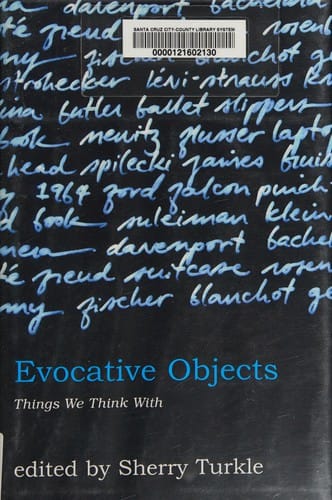 camera davenport bachelard
SANTA CRUZ CITY-COUNTY LIBRARY SYSTEM
0000121602130
té freud rosen
my blanchot ge
strohecker lévi-strauss k
ina butler ballet slippers
book newitz flusser lapto
head spilecki james
y 1964 ford falcon
d book suleiman klein
mera davenport bache
té freud suitcase rosen
my fischer blanchot ge
Evocative Objects
Things We Think With
edited by Sherry Turkle